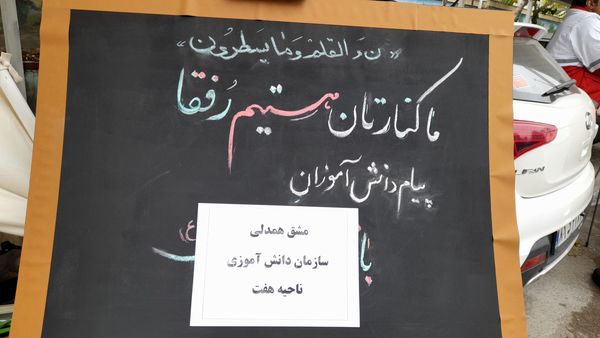 «ن و القلم وما یسطرون»
ما کنارتان هستیم رُفقا
پیام دانش آموزانِ
مشق همدلی
سازمان دانش آموزی
ناحیه هفت